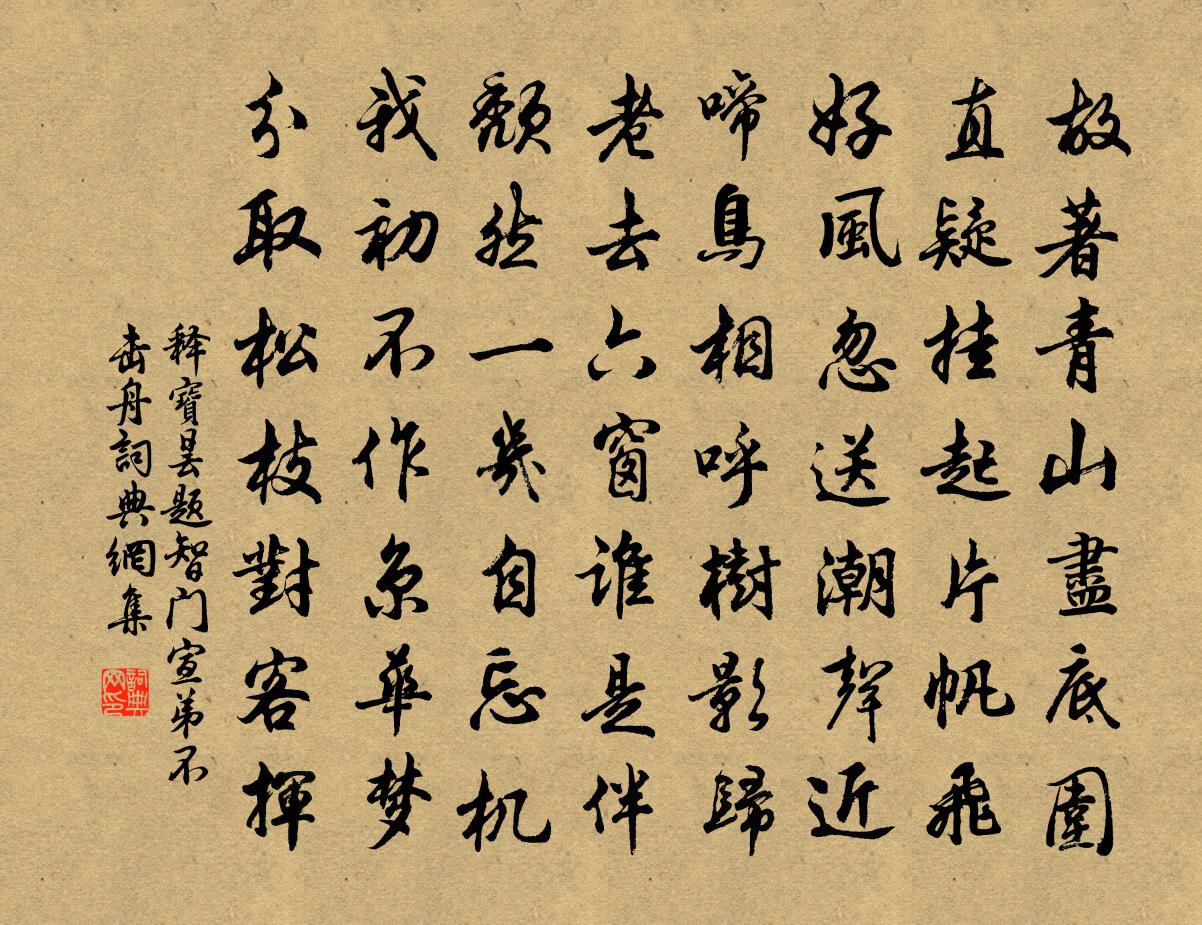 故著青山盡底圍
直疑挂起片帆飛
好風忽送潮聲近
啼鳥相呼樹影歸
老去六窗誰是伴
頹然一几自忘机
我初不作京華梦
分取松枝對客揮
释寶昙题智门宣弟不
击舟詞典網集
詞典网印